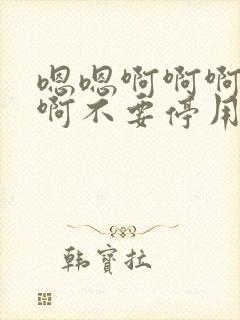 嗯嗯啊啊啊
啊不要停用
韩寳拉